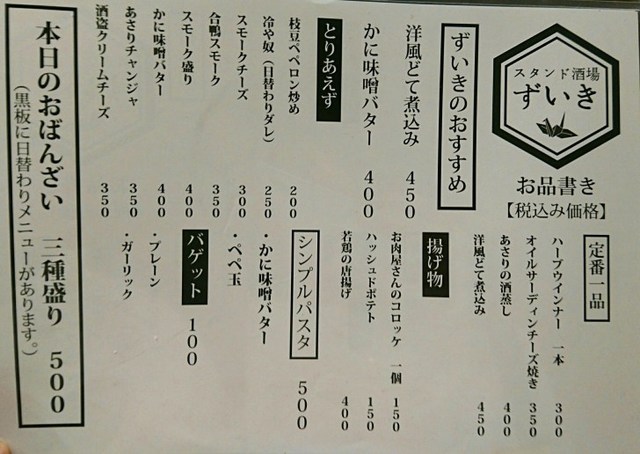 スタンド酒場
ずいき
お品書き
【税込み価格】
ずいきのおすすめ
洋風どて煮込み 450
かに味噌バター 400
とりあえず
枝豆ペペロン炒め 200
冷や奴（日替わりダレ） 250
スモークチーズ 300
合鴨スモーク 350
スモーク盛り 400
かに味噌バター 400
あさりチャンジャ 350
酒盗クリームチーズ 350
定番一品
ハーブウインナー 一本 300
オイルサーディンチーズ焼き 350
あさりの酒蒸し 400
洋風どて煮込み 450
揚げ物
お肉屋さんのコロッケ 一個 150
ハッシュドポテト 150
若鶏の唐揚げ 400
シンプルパスタ 500
・かに味噌バター
・ペペ玉
バゲット 100
・プレーン
・ガーリック
本日のおばんざい 三種盛り 500
（黒板に日替わりメニューがあります。）